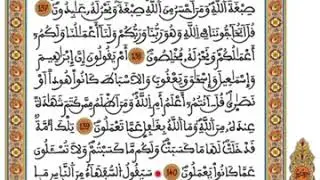 صِبْغَةَ اَللَّهِ وَمَنَ اَحْسَنُ مِنَ اَللَّهِ صِبْغَةً وَنَحْنُ لَهُۥ عَٰبِدُونَ 137
قُلَ اَتُحَآجُّونَنَا فِے اِللَّهِ وَهُوَ رَبُّنَا وَرَبُّكُمْ وَلَنَآ أَعْمَٰلُنَا وَلَكُمُۥٓ
أَعْمَٰلُكُمْ وَنَحْنُ لَهُۥ مُخْلِصُونَ 138 أَمْ يَقُولُونَ إِنَّ إِبْرَٰهِيمَ
وَإِسْمَٰعِيلَ وَإِسْحَٰقَ وَيَعْقُوبَ وَالَاسْبَاطَ كَانُواْ هُوداً اَوْ
نَصَٰرِيٰ قُلَ ءَآنتُمُۥٓ أَعْلَمُ أَمِ اِللَّهُ وَمَنَ اَظْلَمُ مِمَّن كَتَمَ شَهَٰدَةً
عِندَهُۥ مِنَ اَللَّهِ وَمَا اَللَّهُ بِغَٰفِلٍ عَمَّا تَعْمَلُونَ 139 تِلْكَ أُمَّةٌ
قَدْ خَلَتْ لَهَا مَا كَسَبَتْ وَلَكُم مَّا كَسَبْتُمْ وَلَا تُسْـَٔلُونَ
عَمَّا كَانُواْ يَعْمَلُونَ 140 سَيَقُولُ اُلسُّفَهَآءُ مِنَ اَلنَّاسِ مَا